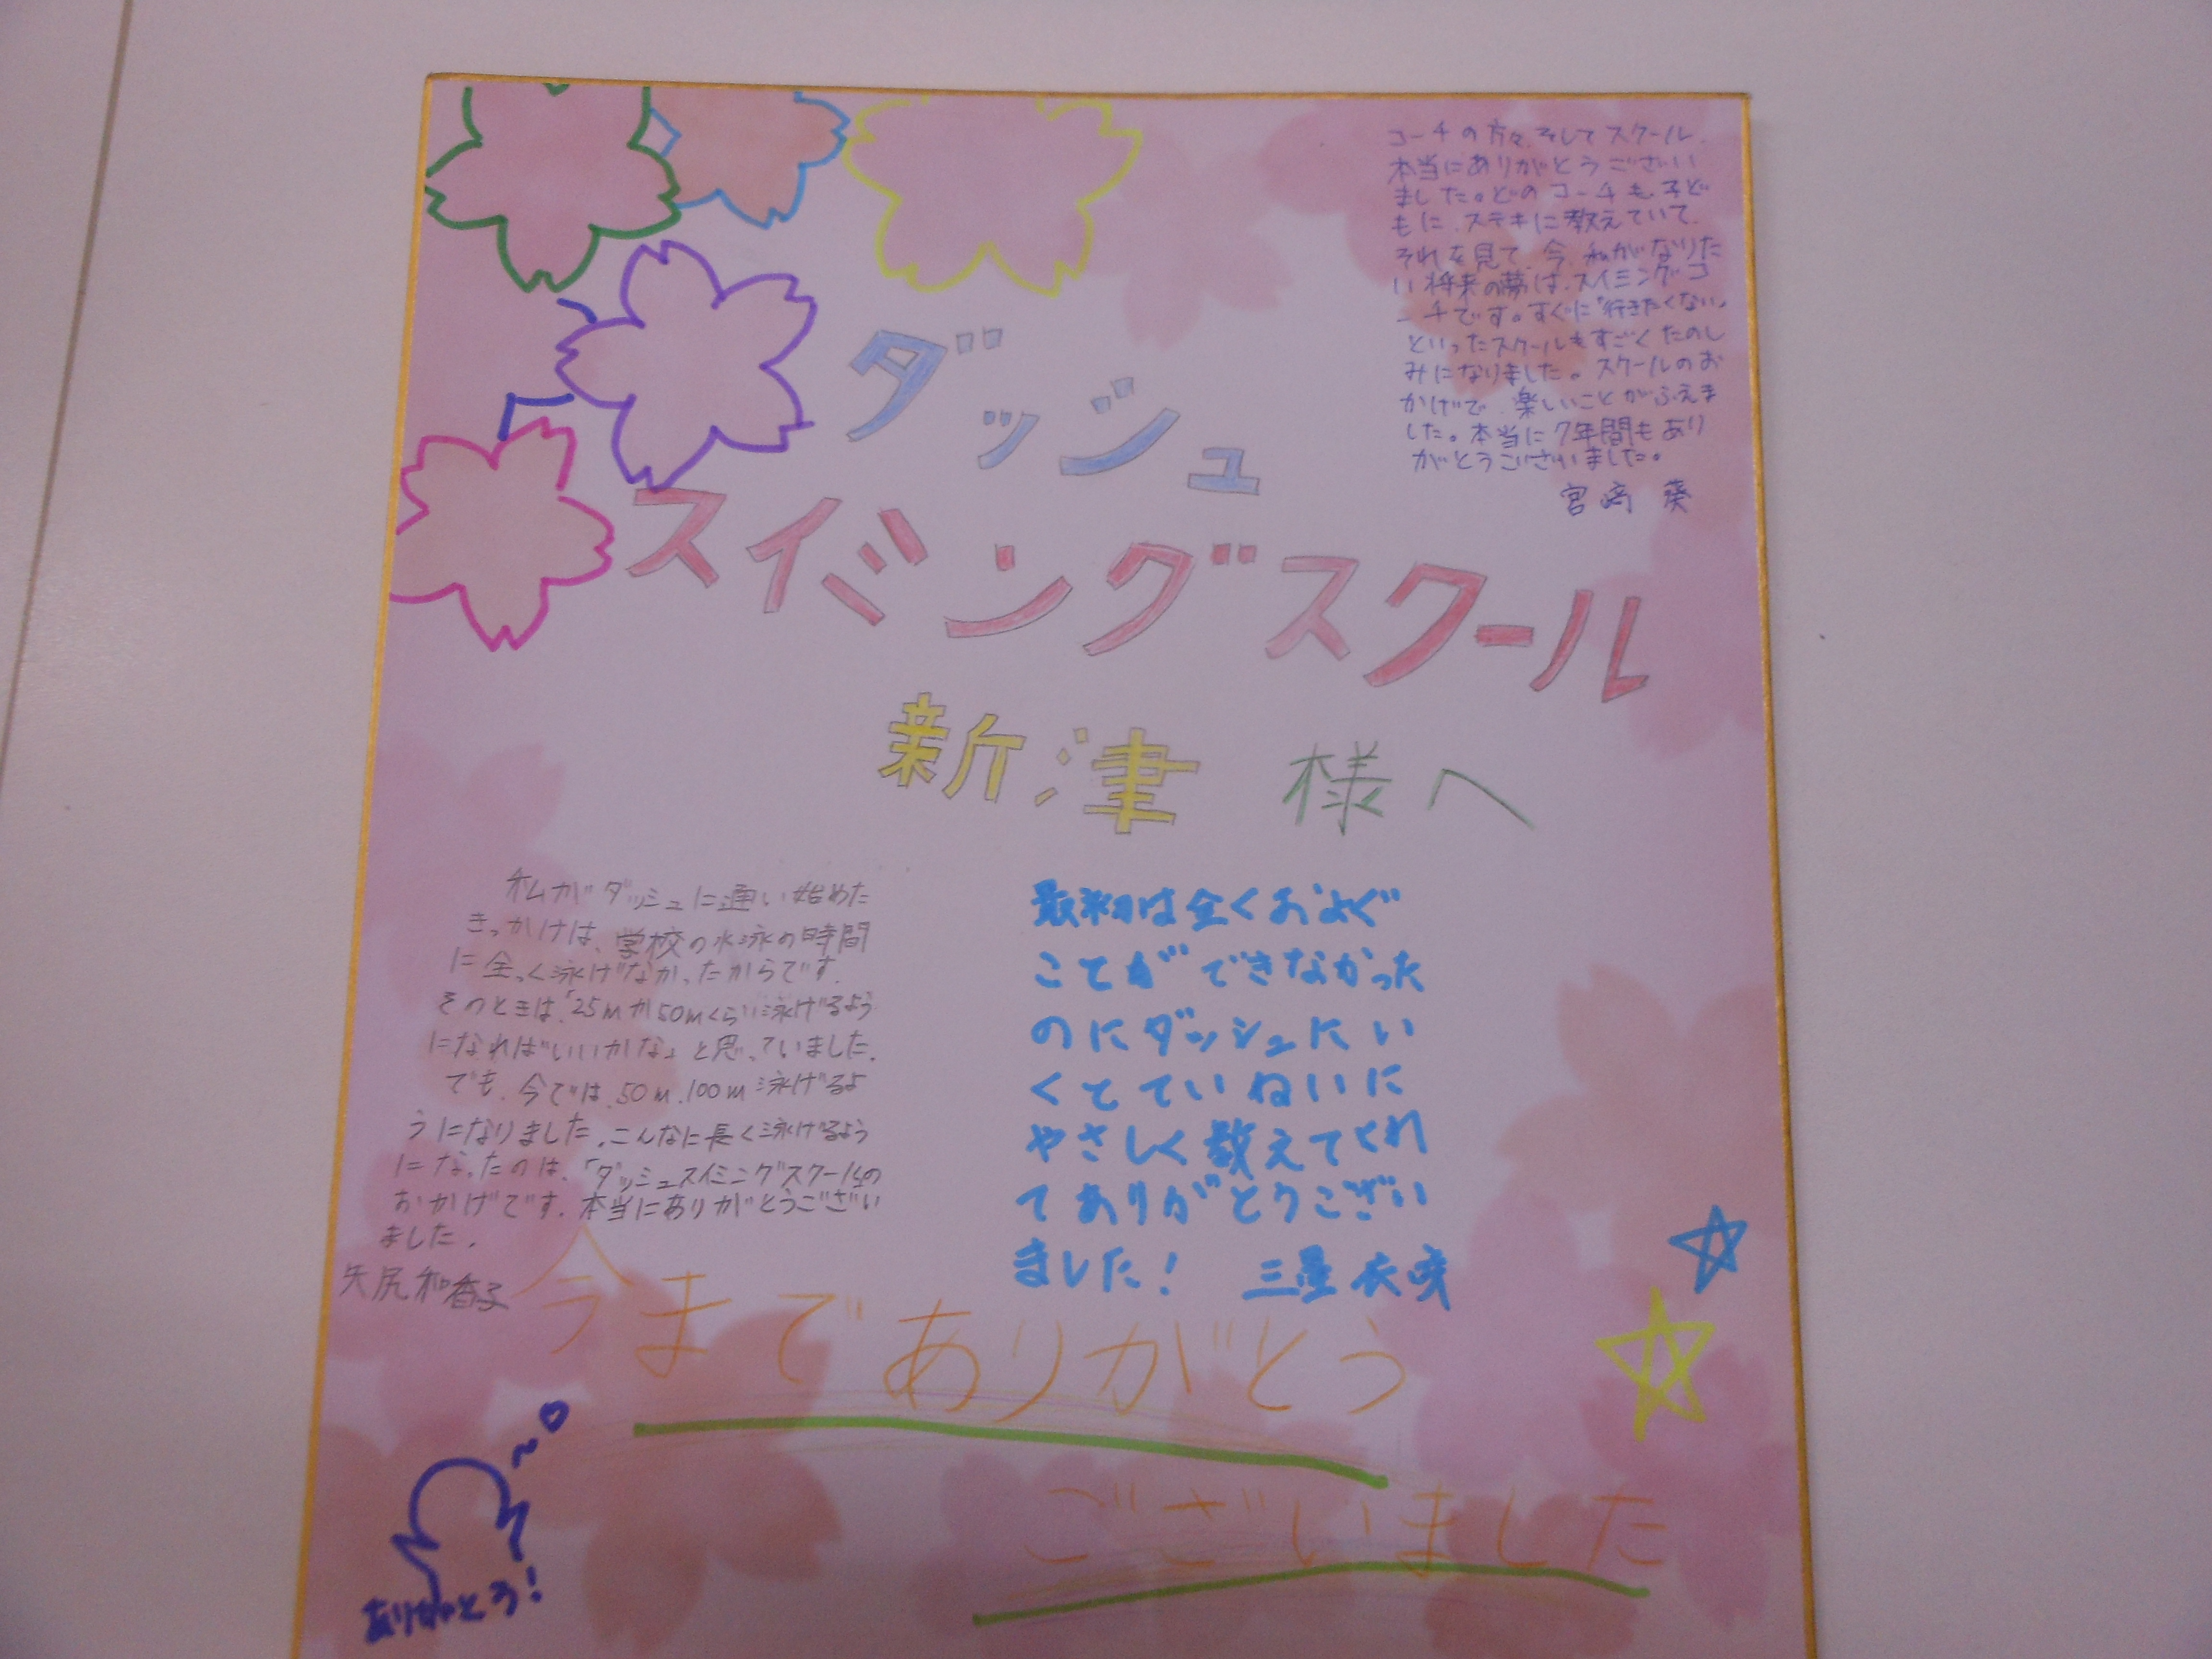 ダッシュ
スイミングスクール
新津 様へ
コーチの方々、そしてスクール、
本当にありがとうござい
ました。どのコーチも、子ど
もに、ステキに教えていて、
それを見て、今、私がなりた
い将来の夢は、スイミングコ
ーチです。すぐに「行きたくない」
といったスクールもすごくたのし
みになりました。スクールのお
かげで、楽しいことがふえま
した。本当に7年間もあり
がとうございました。
宮崎 葵
私がダッシュに通い始めた
きっかけは、学校の水泳の時間
に全っく泳げなかったからです。
そのときは、「25mか50mくらい泳げるよう
になればいいかな」と思っていました。
でも、今では、50m、100m泳げるよ
うになりました。こんなに長く泳げるよう
になったのは、「ダッシュスイミングスクール」の
おかげです。本当にありがとうござい
ました。
矢尻和香子
最初は全くおよぐ
ことができなかった
のにダッシュにい
くとていねいに
やさしく教えてくれ
てありがとうござい
ました! 三星衣咲
今までありがとう
ございました
ありがとう!